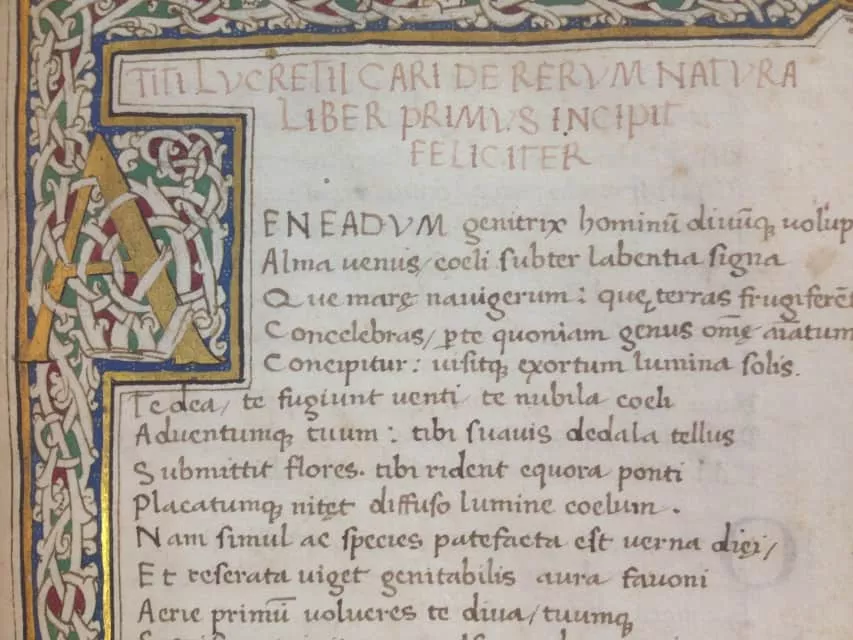 TITI LVCRETII CARI DE RERVM NATVRA
LIBER PRIMVS INCIPIT
FELICITER
AENEADVM genitrix hominū diuūq; uolup
Alma uenus, coeli subter labentia signa
Que marę nauigerum: quę terras frugiferēt
Concelebras, ꝑte quoniam genus omę aīatum
Concipitur: uisitq; exortum lumina solis.
Te dea, te fugiunt uenti te nubila coeli
Aduentumq; tuum: tibi suauis dedala tellus
Submittit flores. tibi rident equora ponti
Placatumq; nitęt diffuso lumine coelum.
Nam simul ac species patefacta est uerna diei,
Et reserata uiget genitabilis aura fauoni
Aerie primū uolucres te diua, tuumq;